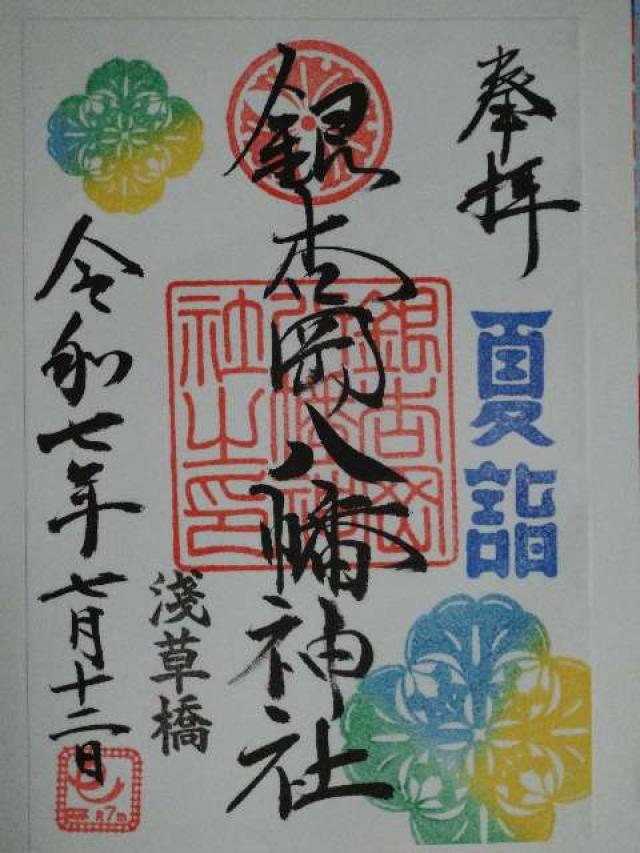 奉拝
夏詣
銀杏岡八幡神社
銀杏岡八幡神社之印
淺草橋
令和七年七月十二日